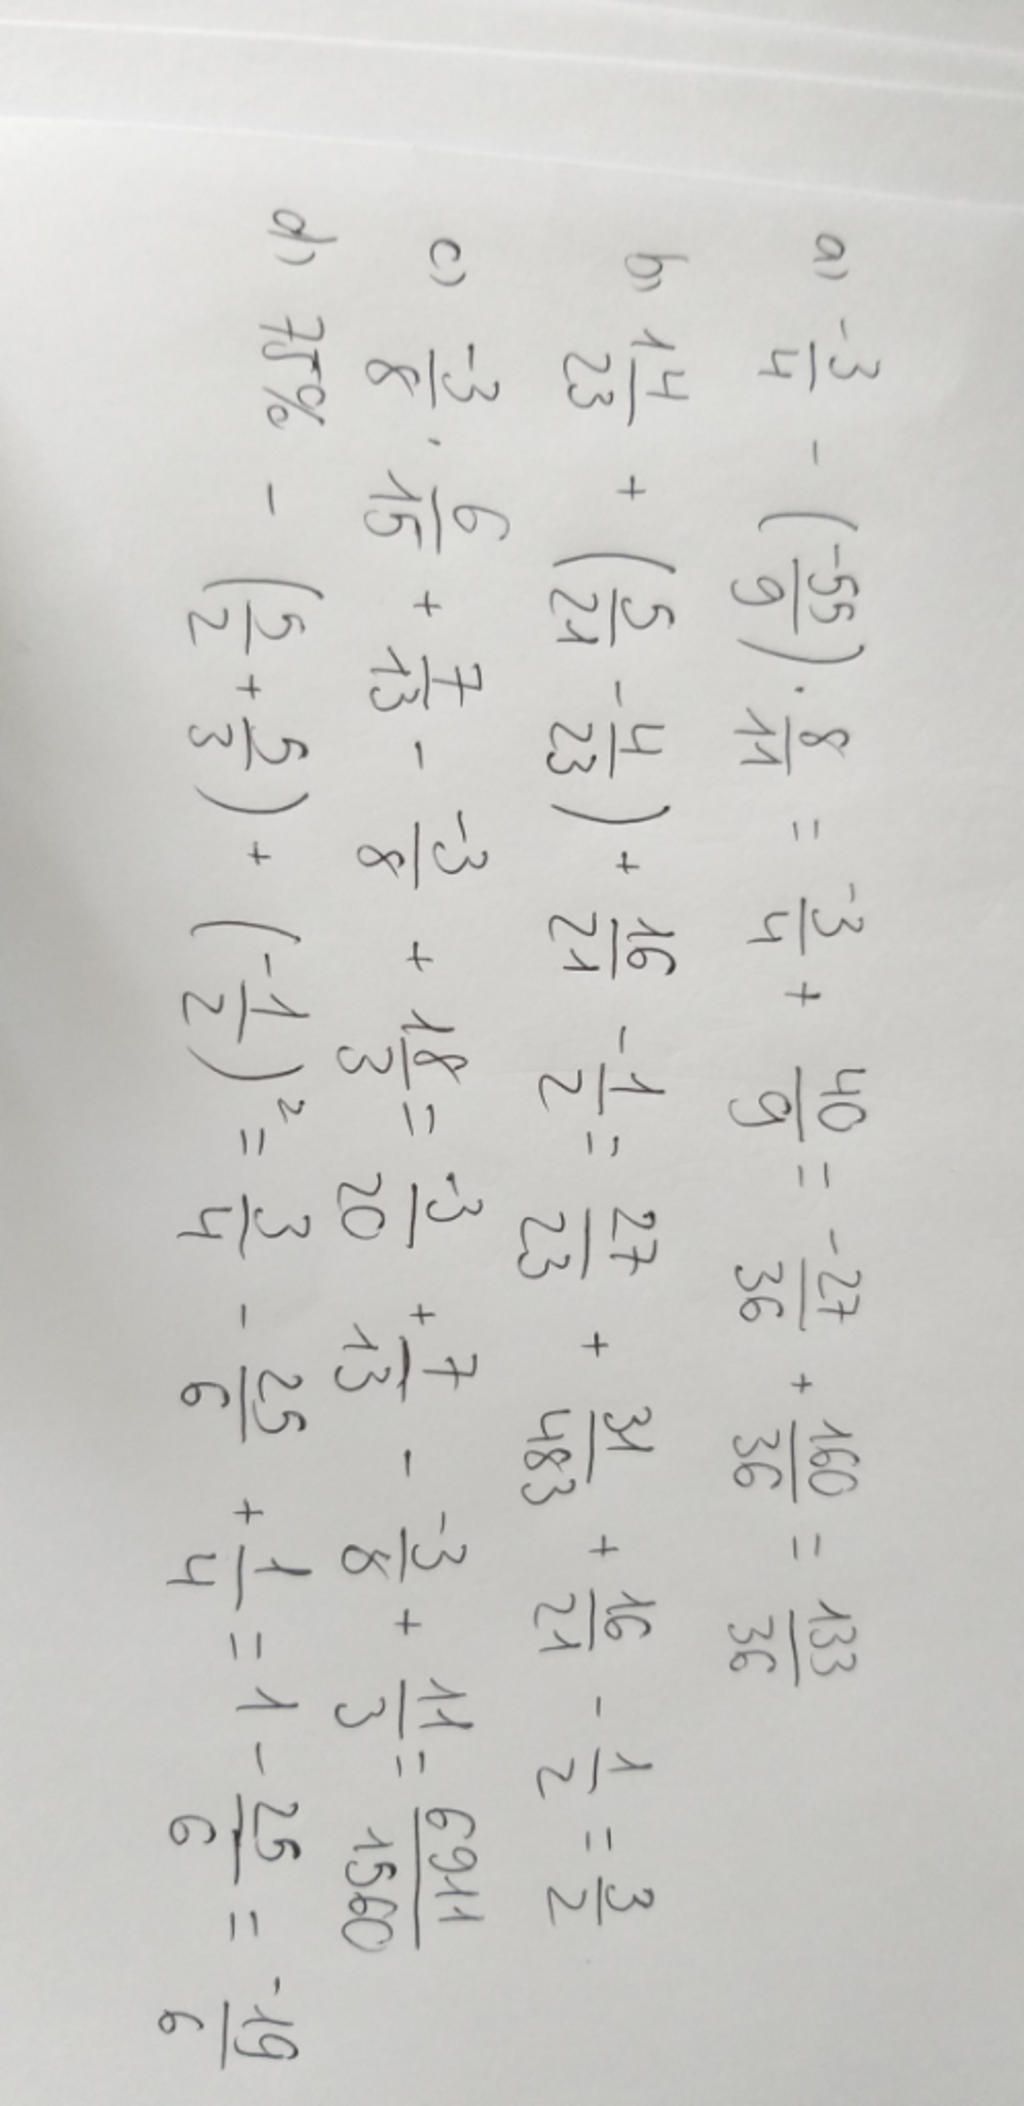 a) -3/4 - (-55/9) · 8/11 = -3/4 + 40/9 = -27/36 + 160/36 = 133/36
b) 14/23 + (5/21 - 4/23) + 16/21 - 1/2 = 27/23 + 31/483 + 16/21 - 1/2 = 3/2
c) -3/8 · 6/15 + 7/13 - -3/8 + 18/3 = -3/20 + 7/13 - -3/8 + 11/3 = 6911/1560
d) 75% - (5/2 + 5/3) + (-1/2)² = 3/4 - 25/6 + 1/4 = 1 - 25/6 = -19/6